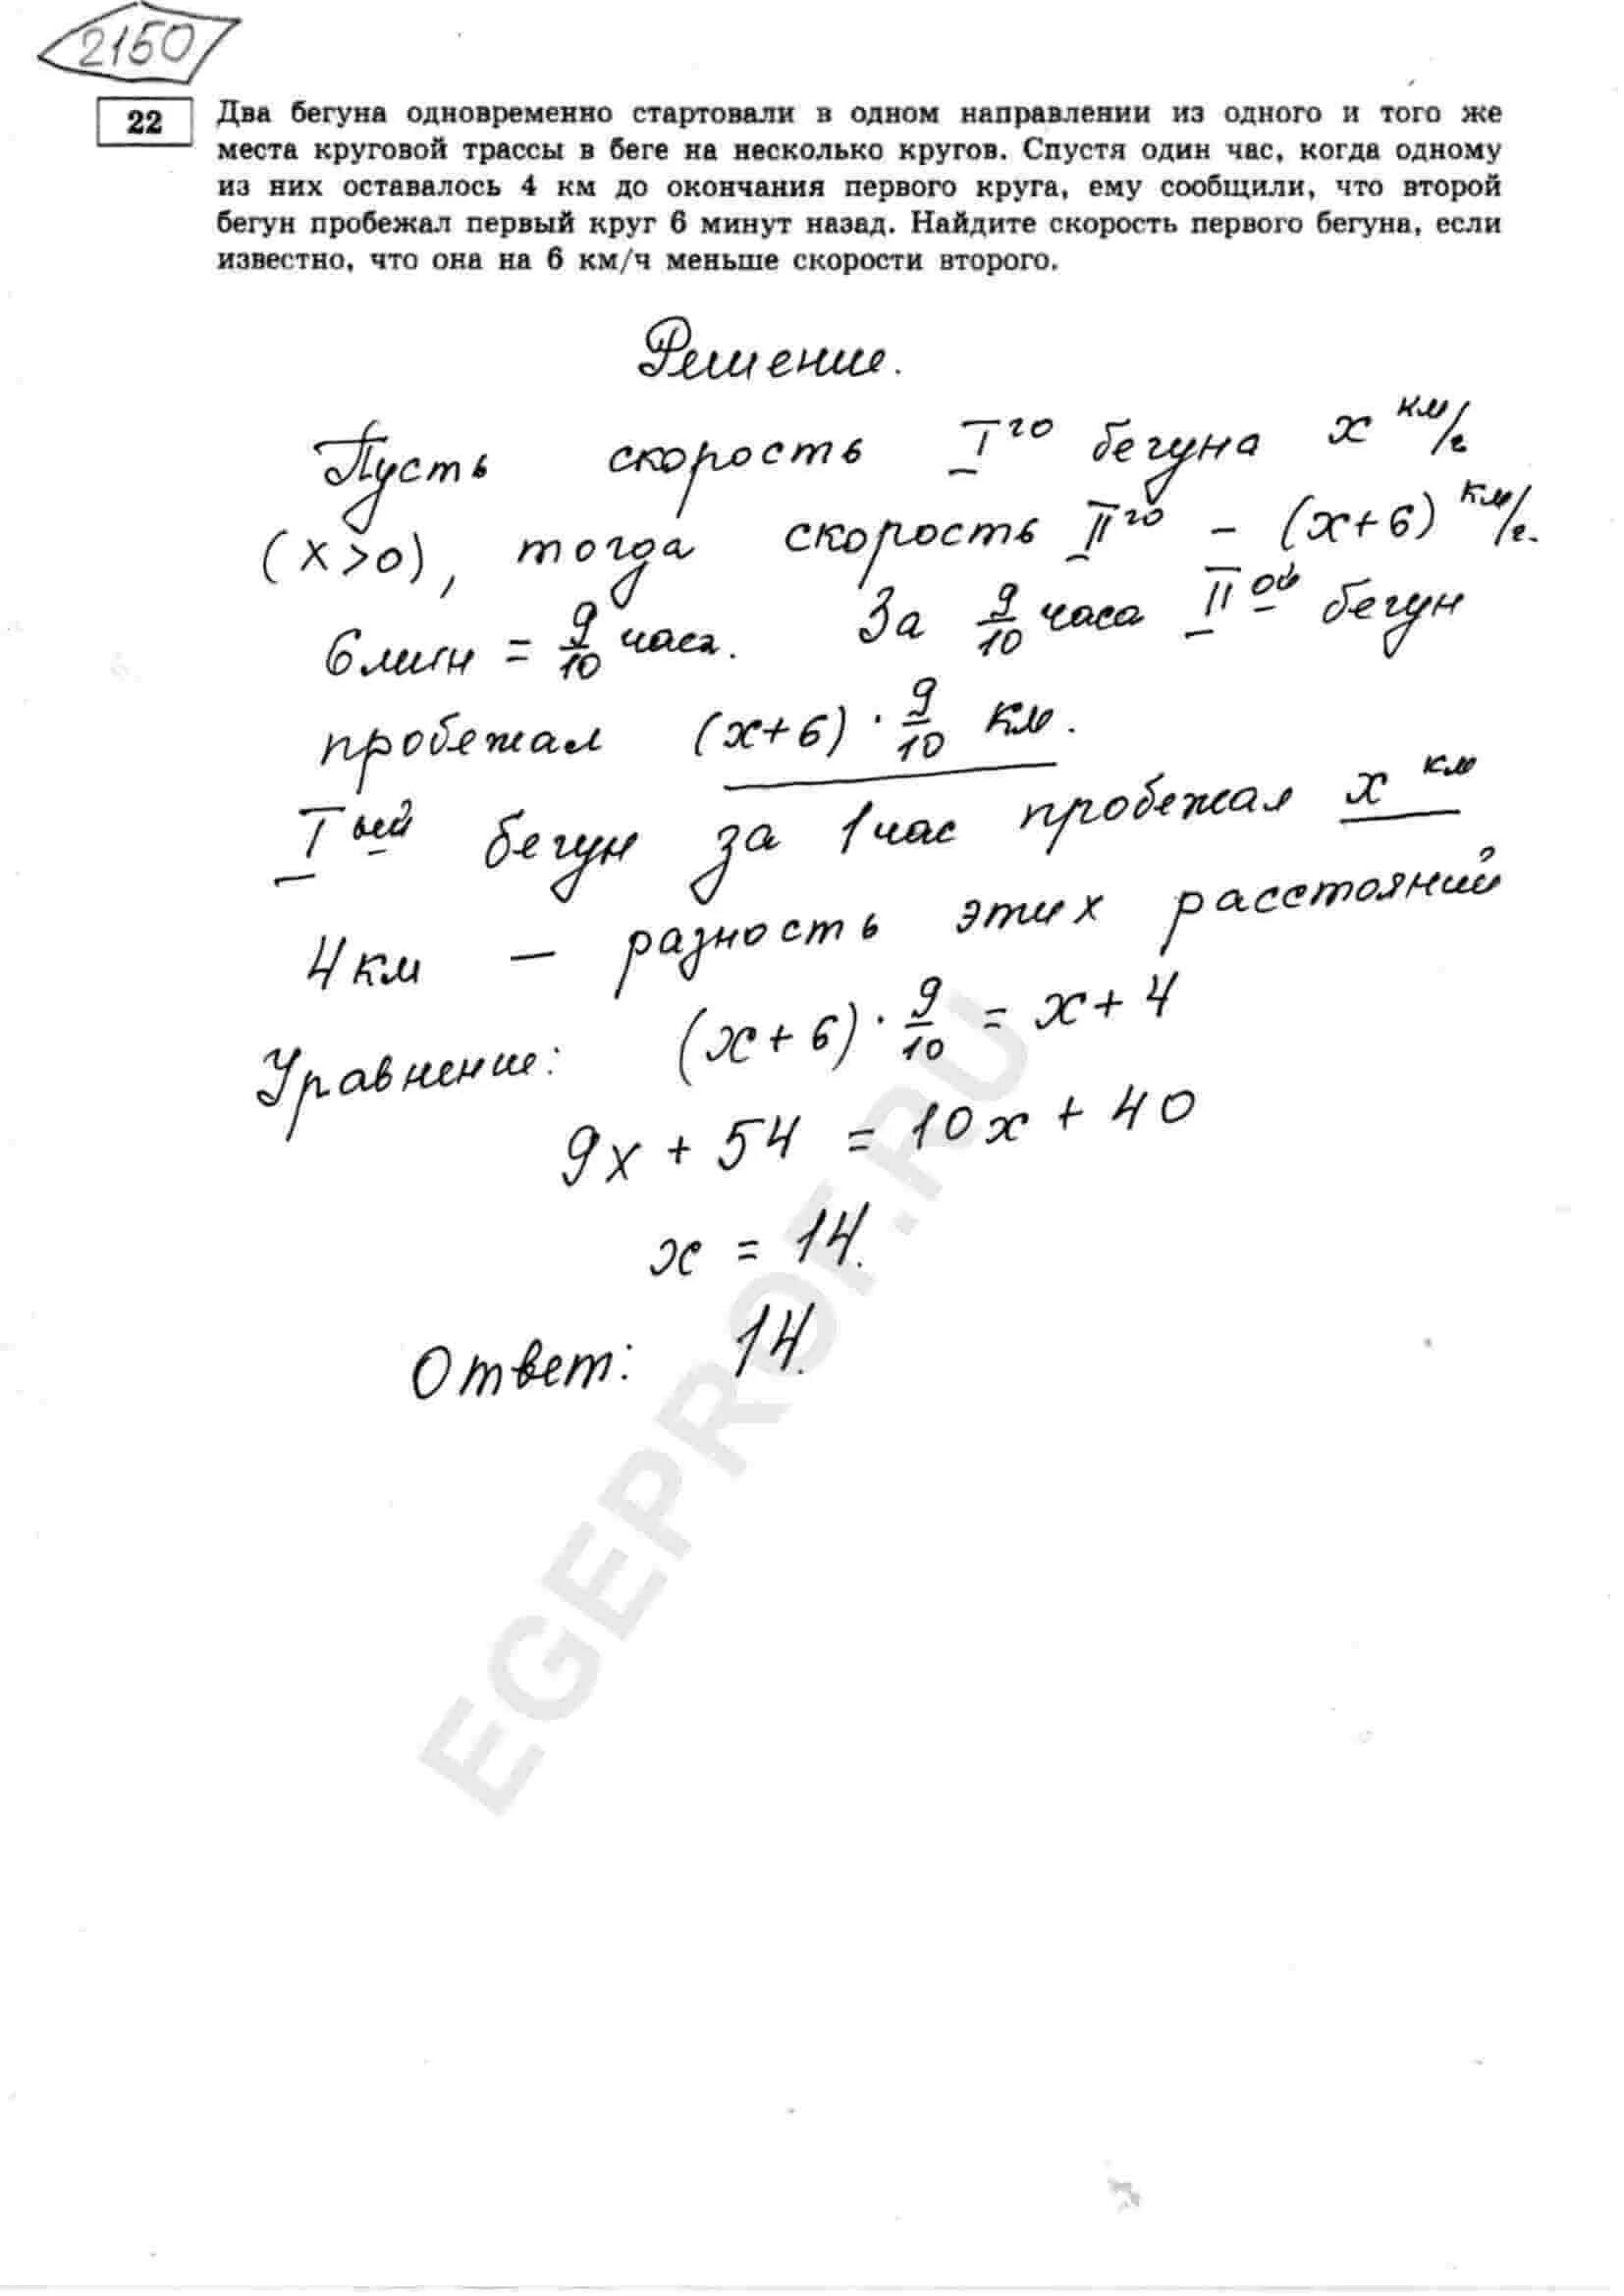 2150
22 Два бегуна одновременно стартовали в одном направлении из одного и того же
места круговой трассы в беге на несколько кругов. Спустя один час, когда одному
из них оставалось 4 км до окончания первого круга, ему сообщили, что второй
бегун пробежал первый круг 6 минут назад. Найдите скорость первого бегуна, если
известно, что она на 6 км/ч меньше скорости второго.
Решение.
Пусть скорость I го бегуна x км/ч
(x>0), тогда скорость II го – (x+6) км/ч.
6 мин = 9/10 часа. За 9/10 часа II ой бегун
пробежал (x+6) · 9/10 км.
I ый бегун за 1 час пробежал x км
4 км – разность этих расстояний
Уравнение: (x+6) · 9/10 = x+4
9x + 54 = 10x + 40
x = 14.
Ответ: 14.
EGEPROF.RU